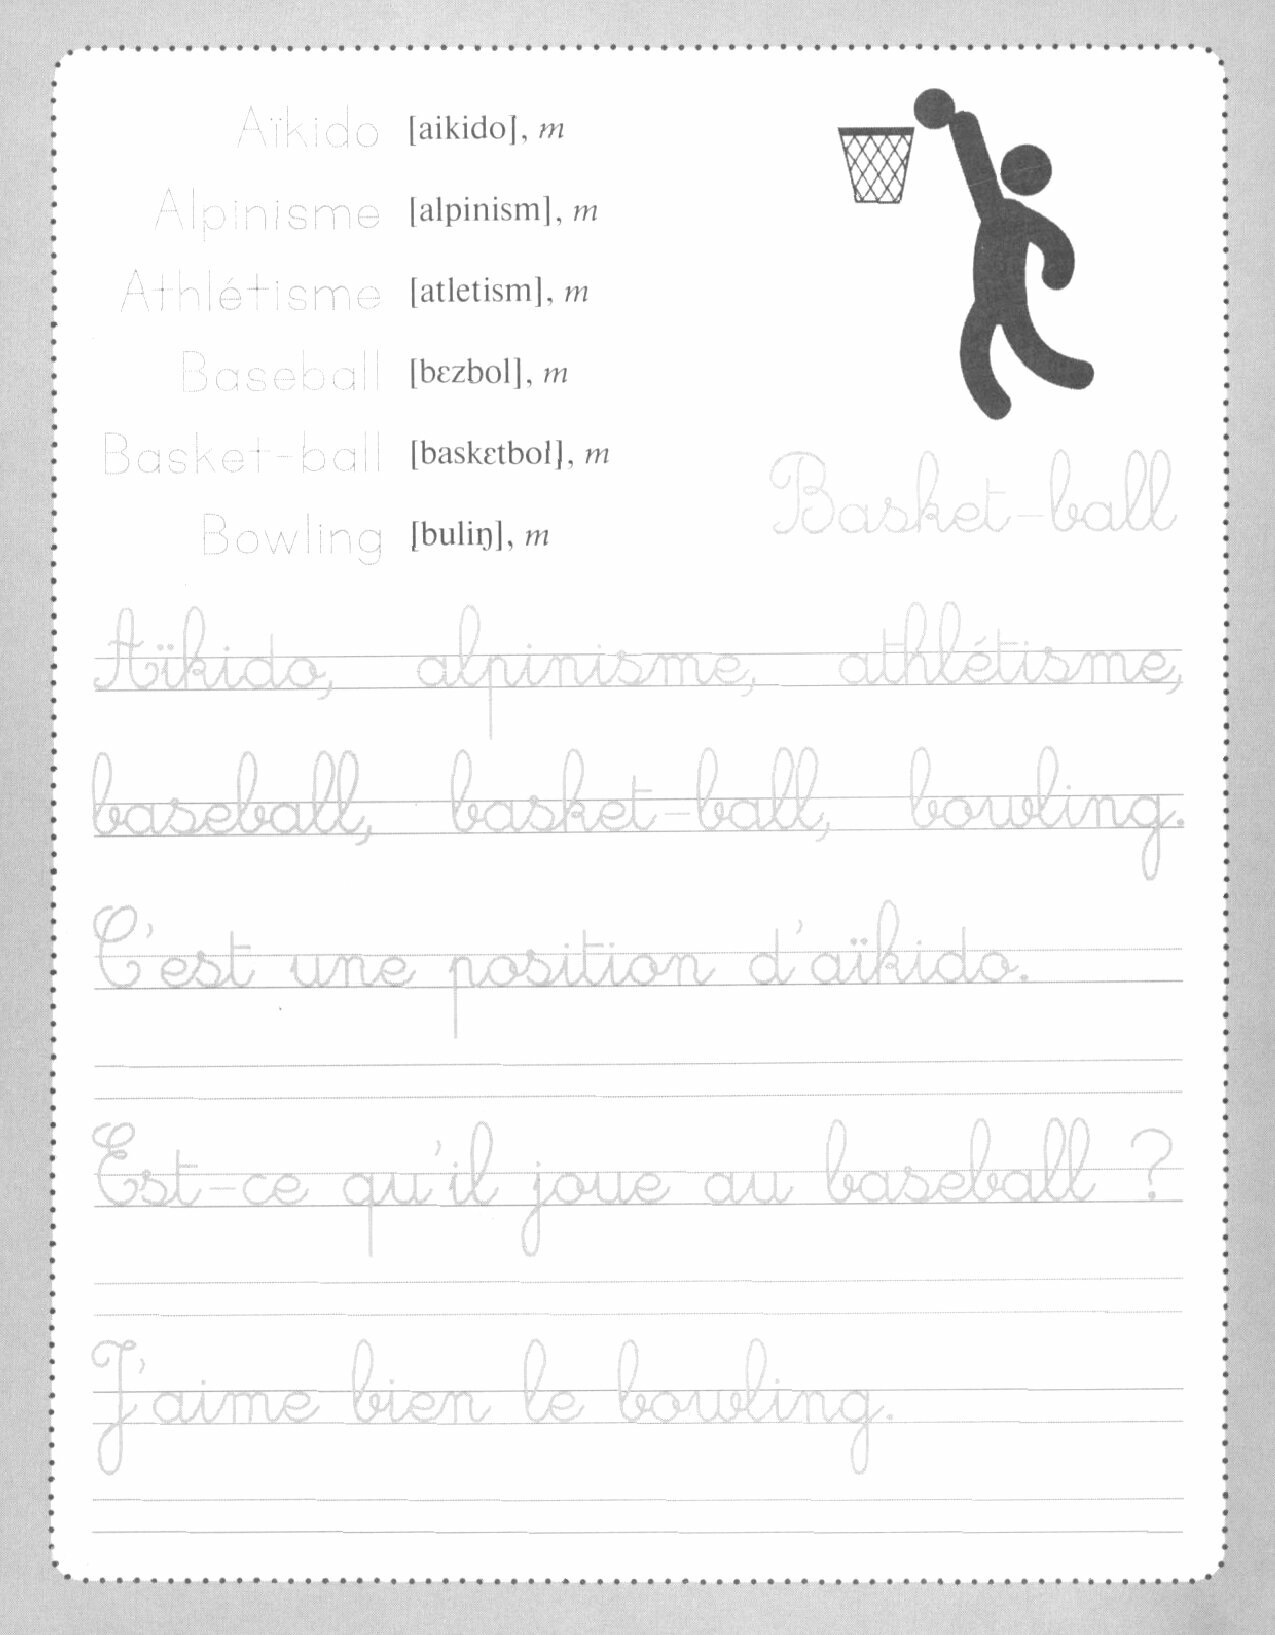 Aïkido [aikido], m
Alpinisme [alpinism], m
Athlétisme [atletism], m
Baseball [bɛzbol], m
Basket-ball [baskɛtbol], m
Bowling [buliŋ], m
Basket-ball
Aïkido, alpinisme, athlétisme,
baseball, basket-ball, bowling.
C'est une position d'aïkido.
Est-ce qu'il joue au baseball ?
J'aime bien le bowling.